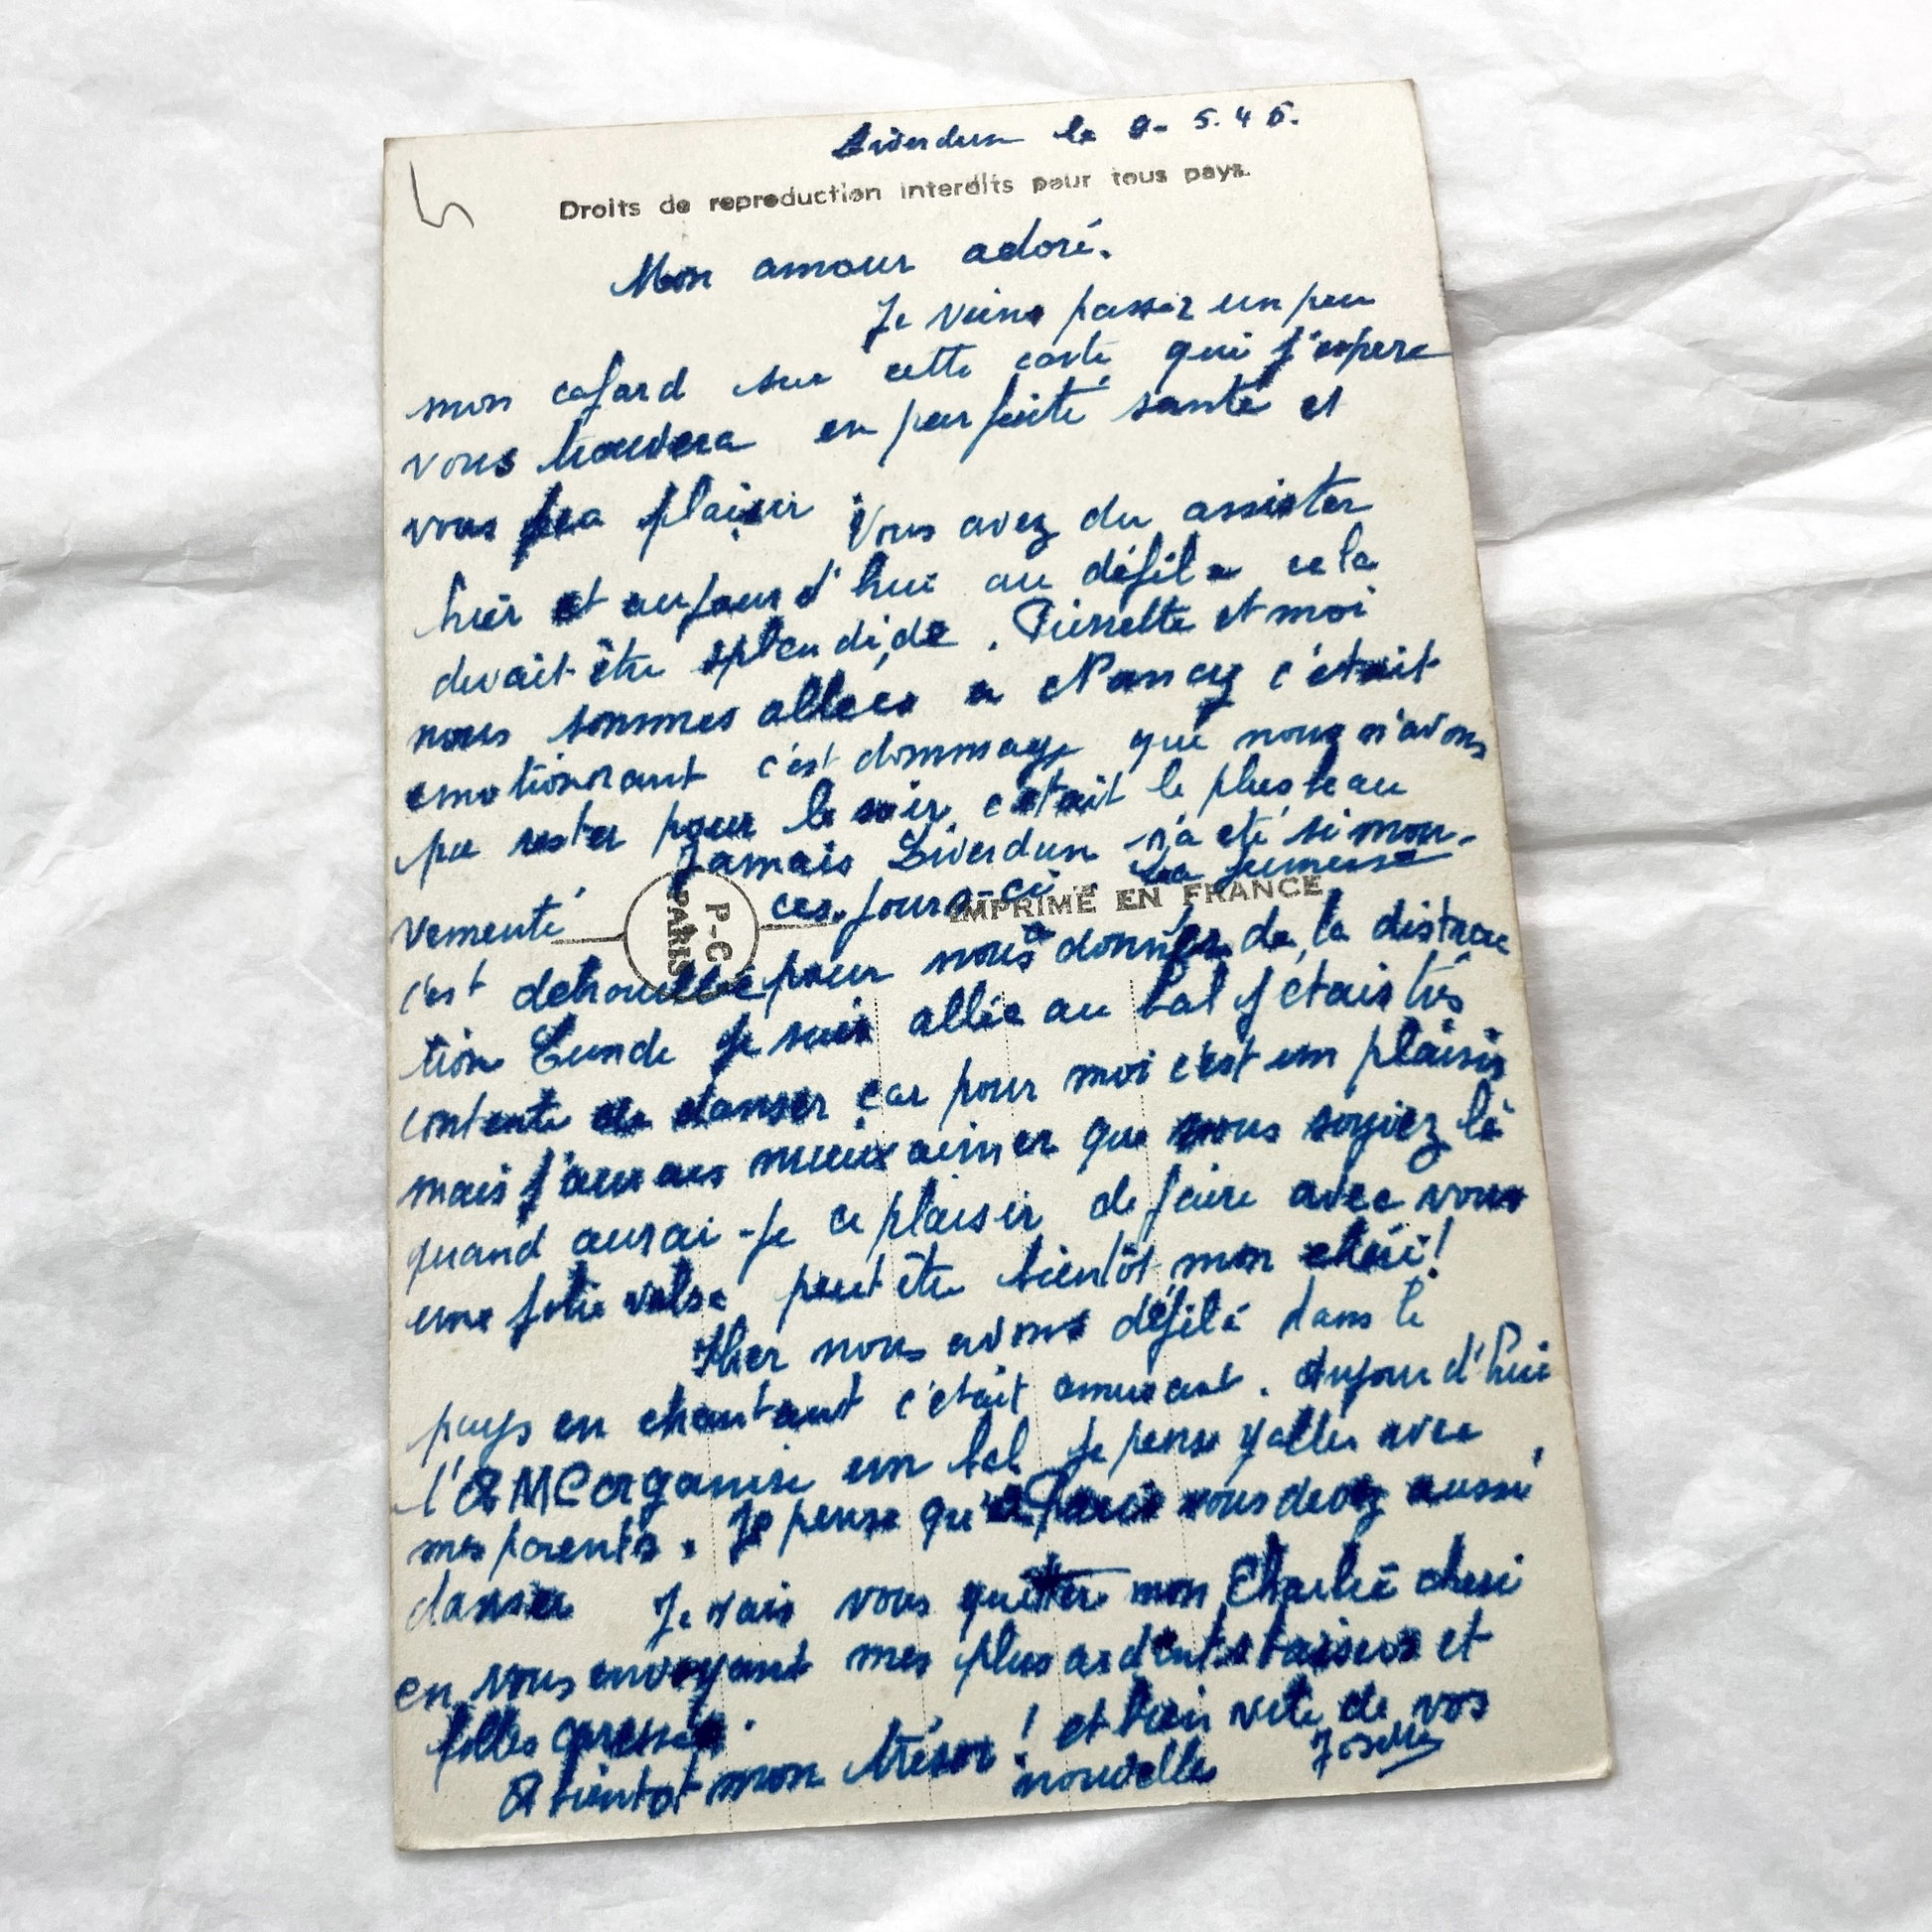 Liverdun le 9-5.45.
Droits de reproduction interdits pour tous pays.
Mon amour adoré.
Je viens passer un peu
mon cafard sur cette carte qui j'espere
vous trouvera en parfaite santé et
vous fera plaisir Vous avez du assister
hier et aujourd'hui au défile cela
devait être splendide. Pierrette et moi
nous sommes allees a Nancy c'etait
emotionnant c'est dommage que nous n'avons
pu rester pour le soir, c'etait le plus beau
Jamais Liverdun n'a eté si mou-
vementé ces jours-ci. La jeunesse
IMPRIMÉ EN FRANCE
P-C PARIS
c'est debrouillée pour nous donner de la distrac
tion Lunde je suis allée au bal j'etais très
contente de danser car pour moi c'est un plaisir
mais j'aurais mieux aimer que vous soyiez là
quand aurai-je ce plaisir de faire avec vous
une jolie valse peut être bientôt mon chéri!
Hier nous avons défilé dans le
pays en chantant c'etait amusant. Aujourd'hui
l'AMC organise un bal je pense y aller avec
mes parents. Je pense qu'a Paris vous devez aussi
danser Je vais vous quitter mon Charlie cheri
en vous envoyant mes plus ardents baisers et
folles caresses.
A bientot mon trésor! et bien vite de vos
nouvelles Josette